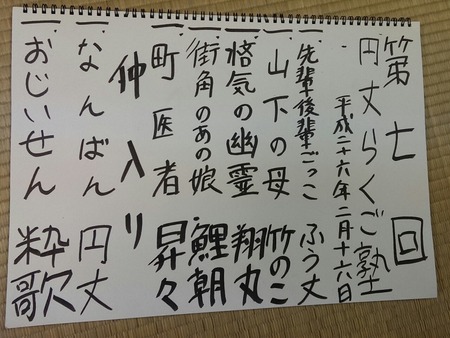 第七回
円丈らくご塾
平成二十六年二月十六日
一先輩後輩ごっこ ふう丈
一山下の母 竹のこ
一悋気の幽霊 翔丸
一街角のあの娘 鯉朝
一町医者 昇々
仲入り
一なんばん 円丈
一おじいせん 粋歌